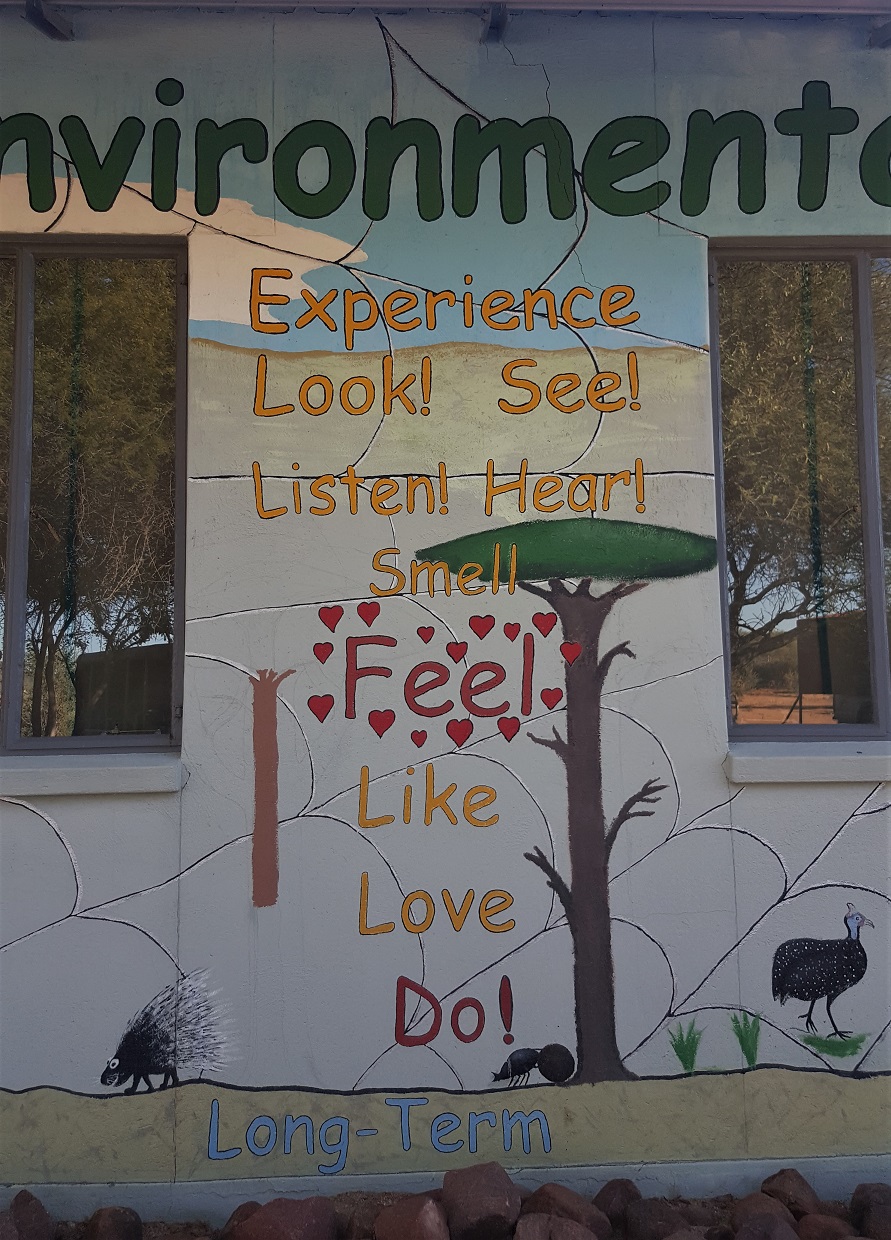 nvironmenta
Experience
Look! See!
Listen! Hear!
Smell
Feel
Like
Love
Do!
Long-Term